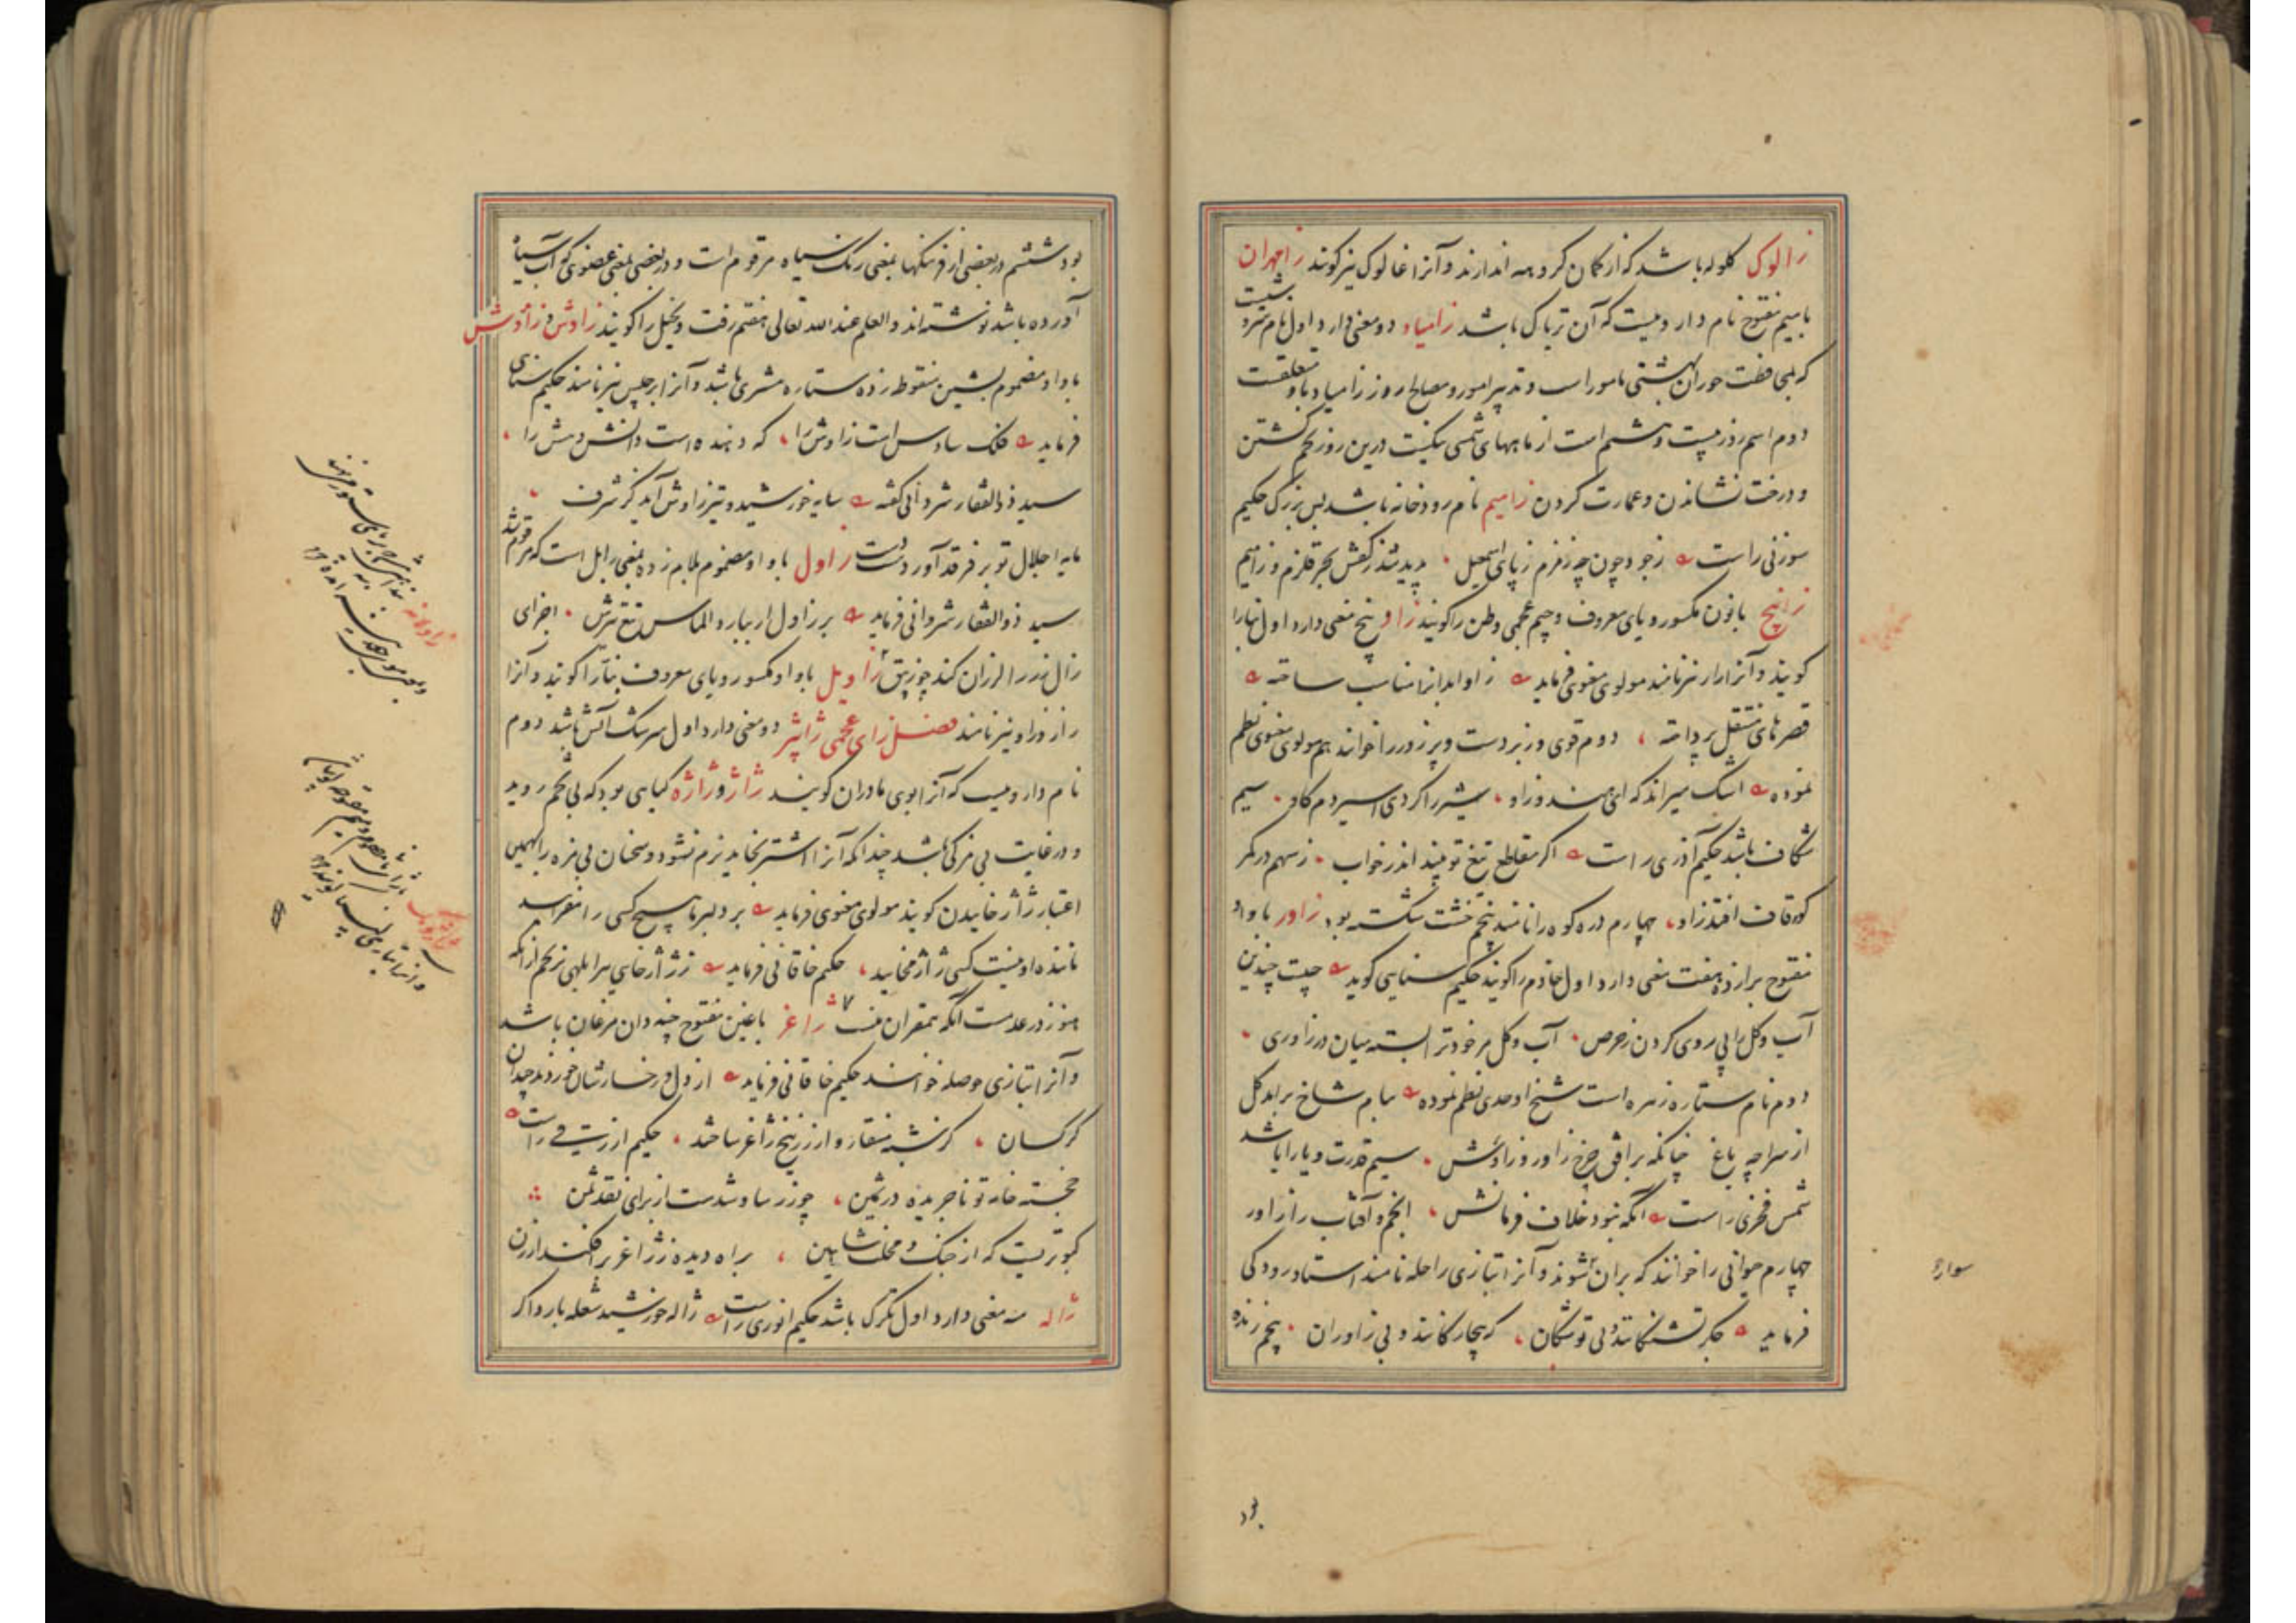 زالوک کلوله باشد که از کمان کروهه اندازند و آنرا غالوک نیز کویند زامهران
بامیم مفتوح نام داروییست که آن تریاک باشد زامیاد دو معنی دارد اول نام
که بمحافظت حوران بهشتی مامور است و تدبیر امور و مصالح روز زامیاد باو متعلقست
دوم اسم روز بیست و هشتم است از ماههای شمسی نیکست درین روز تخم کشتن
و درخت نشاندن و عمارت کردن زامیم نام رودخانه باشد بس بزرک حکیم
سوزنی راست ز جود چون چه زمزم ز پای اسمعیل پدید شد ز کفش بحر قلزم و زامیم
زانیچ بانون مکسور و یای معروف و جیم عجمی وطن را کویند زاو پنج معنی دارد اول بنارا
کویند و آنرا راز نیز نامند مولوی معنوی فرماید زاو ابدانرا مناسب ساخته
قصرهای منتقل پرداخته دوم قوی و زبردست و پر زور را خوانند هم مولوی معنوی نظم
نموده اشک میراند که ای هندو زاو شیر را کردی اسیر دم کاو سیم
شکاف باشد حکیم آذری راست اکر مقاطع تیغ تو بیند اندر خواب ز سهم در کمر
کوه قاف افتد زاو چهارم دره کوه را نامند پنجم خشت شکسته بود زاور باواو
مفتوح برا زده هفت معنی دارد اول خادم را کویند حکیم سنایی کوید چیست چندین
آب و کل را پی روی کردن ز حرص آب و کل مر خود ترا بسته میان در زاوری
دوم نام ستاره زهره است شیخ اوحدی نظم نموده بیام شاخ برآید کل
از سراچه باغ چنانکه بر افق چرخ زاور و زاوش سیم قدرت و یارا باشد
شمس فخری راست آنکه نبود خلاف فرمانش انجم و آفتاب را زاور
چهارم حیوانی را خوانند که بران سوار شوند و آنرا بتازی راحله نامند استاد رودکی
فرماید جکر تشنکانند بی توشکان که بیچارکانند و بی زاوران پنجم زنده
سواره
بود
بود ششم در بعضی از فرهنکها بمعنی رنک سیاه مرقوم است و در بعضی بمعنی عضوی که آب سیاه
آورده باشد نوشته اند و العلم عند الله تعالی هفتم زفت و بخیل را کویند زاوش و زاؤش
باواو مضموم بشین منقوطه زده ستاره مشتری باشد و آنرا برجیس نیز نامند حکیم سنایی
فرماید فلک سادس است زاوش را که دهنده است دانش و هش را
سید ذوالفقار شروانی کفته سایه خورشید و تیز زاوش آید کز شرف
مایه اجلال تو بر فرقد آورد دست زاول باواو مضموم بلام زده بمعنی زابل است که مرقوم شد
سید ذوالفقار شروانی فرماید بر زاول ار ببارد الماس تیغ تیزش اجزای
زال زر را لرزان کند چو زیبق زاویل باواو مکسور و یای معروف بنا را کویند و آنرا
راز و زاو نیز نامند فصل زای عجمی ژاپژ دو معنی دارد اول سرشک آتش باشد دوم
نام داروییست که آنرا بوی مادران کویند ژاژ و ژاژه کیاهی بود که بی تخم روید
و در غایت بی مزکی باشد چندانکه آنرا اشتر بخاید نرم نشود و سخنان بی مزه را بهمین
اعتبار ژاژ خاییدن کویند مولوی معنوی فرماید بر دلبر ما هیچ کسی را مفزایید
ماننده او نیست کسی ژاژ مخایید حکیم خاقانی فرماید ز ژاژ خایی هر ابلهی نرنجم ازانکه
هنوز در عدمست آنکه همقران منست ژاغر باغین مفتوح چینه دان مرغان باشد
و آنرا بتازی حوصله خوانند حکیم خاقانی فرماید از دل و رخسارشان خوردند چندان
کرکسان کز شبه منقار و از زرنیخ ژاغر ساختند حکیم ازرقی راست
خجسته خامه تو تا جریده در ثمین چو زر ساو شدست از برای نقد ثمن
کبوتریست که از جنک و مخلب شاهین براه دیده ز ژاغر برافکند ارزن
ژاله سه معنی دارد اول تکرک باشد حکیم انوری راست ژاله خورشید شعله بارد اکر
زاولانه